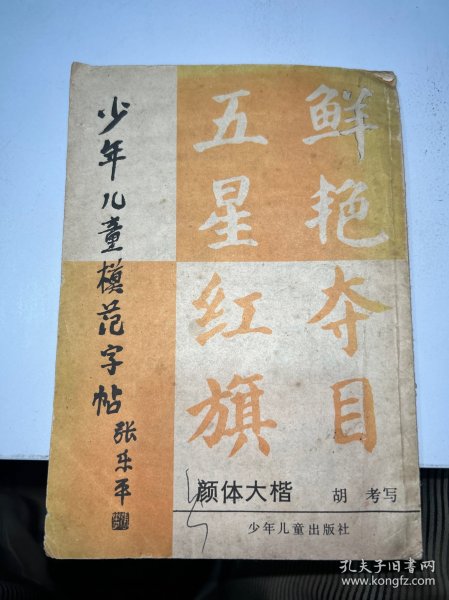 少年儿童模范字帖
张乐平
鲜艳夺目
五星红旗
颜体大楷 胡 考写
少年儿童出版社
孔夫子旧书网
www.kongfz.com